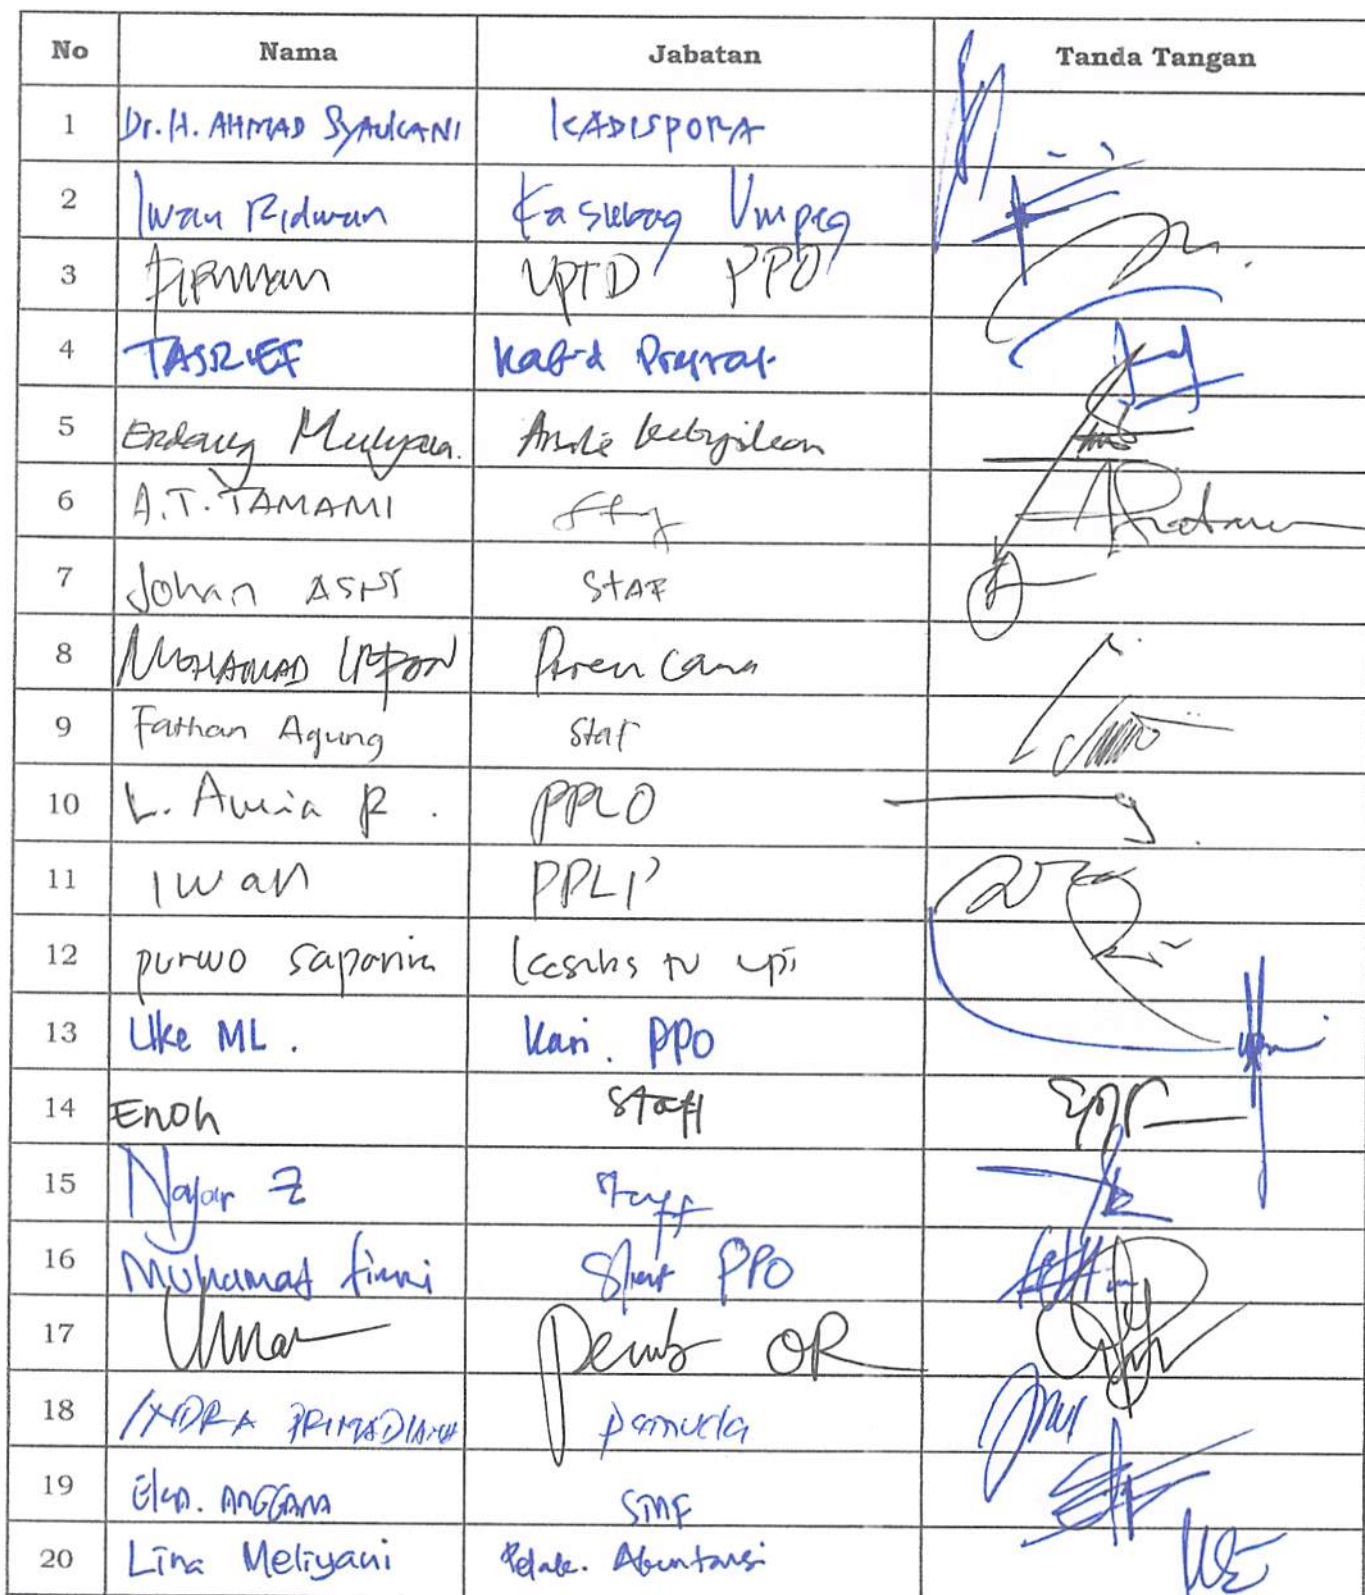 No Nama Jabatan Tanda Tangan
1 Dr. H. AHMAD SYAUKANI KADISPORA
2 Iwan Ridwan Kasubag Umpeg
3 FIRMAN UPTD PPO
4 TASRIEF Kabid
5 Endang Mulyana.
6 A.T. TAMAMI
7 Johan STAF
8 MOHAMAD Perencana
9 Fathan Agung Staf
10 L. Aulia R. PPLO
11 IWAN PPLP
12 purwo
13 Uke ML. Kasi. PPO
14 Enoh Staff
15 Najar Z Staff
16 Muhamad firmi Staf PPO
17 Umar Pemb OR
18 INDRA PRIMADIANA pemuda
19 Eka. ANGGARA STAF
20 Lina Meliyani Akuntansi